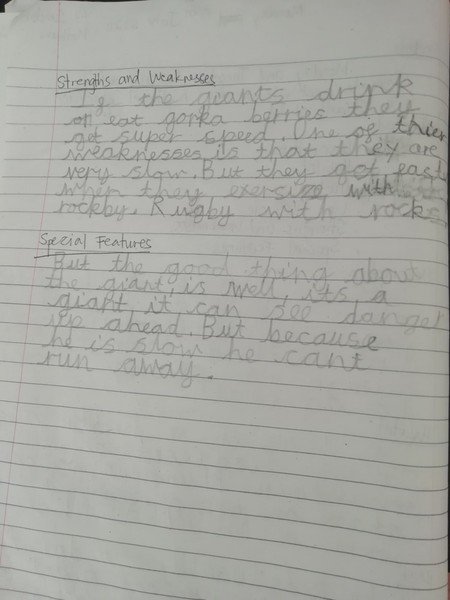 Strengths and Weaknesses
If the giants drink
or eat gorka berries they
get super speed. One of thier
weaknesses is that they are
very slow. But they get fast
when they exersize with
rockby. Rugby with rocks
Special Features
But the good thing about
the giant is well, its a
giant it can see danger
up ahead. But because
he is slow he cant
run away.